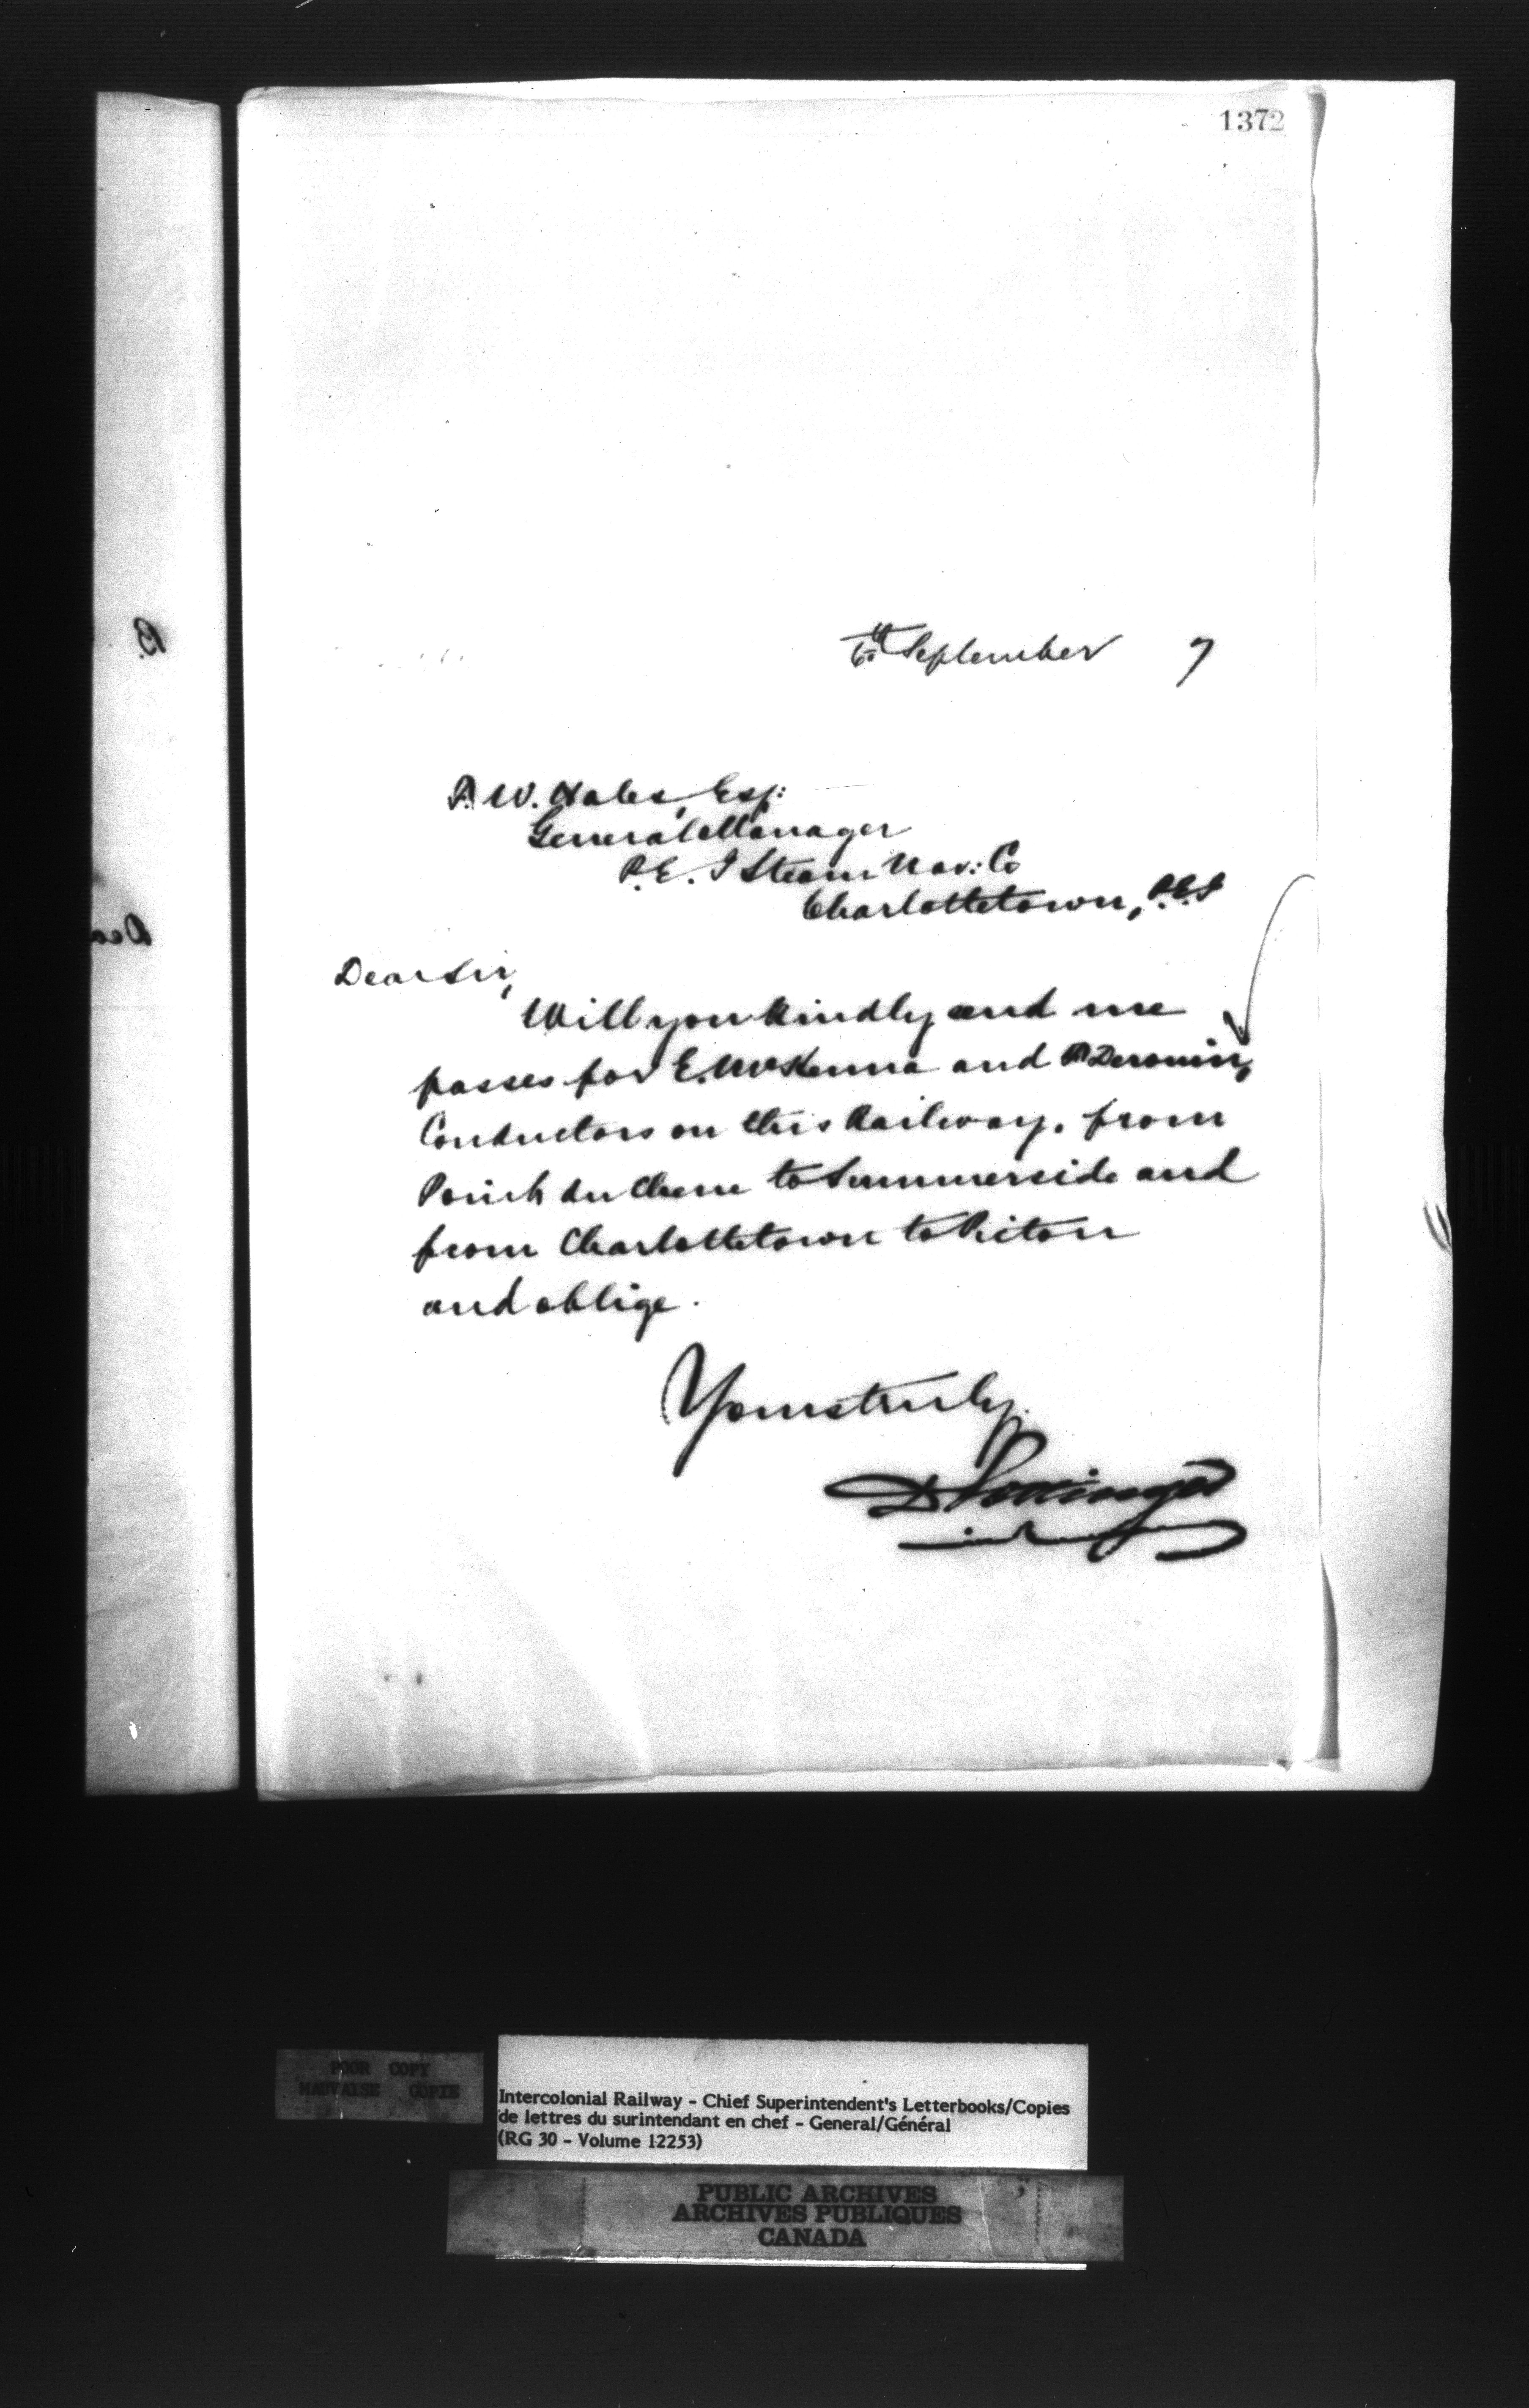 1372
6th September 7
F. W. Hales, Esq:
General Manager
P. E. I Steam Nav: Co
Charlottetown, P.E.I
Dear Sir,
Will you kindly send me
passes for E. McKenna and
Conductors on this Railway, from
Point du Chene to Summerside and
from Charlottetown to Pictou
and oblige.
Yours truly.
D Pottinger
POOR COPY
MAUVAISE COPIE
Intercolonial Railway - Chief Superintendent's Letterbooks/Copies
de lettres du surintendant en chef - General/Général
(RG 30 - Volume 12253)
PUBLIC ARCHIVES
ARCHIVES PUBLIQUES
CANADA